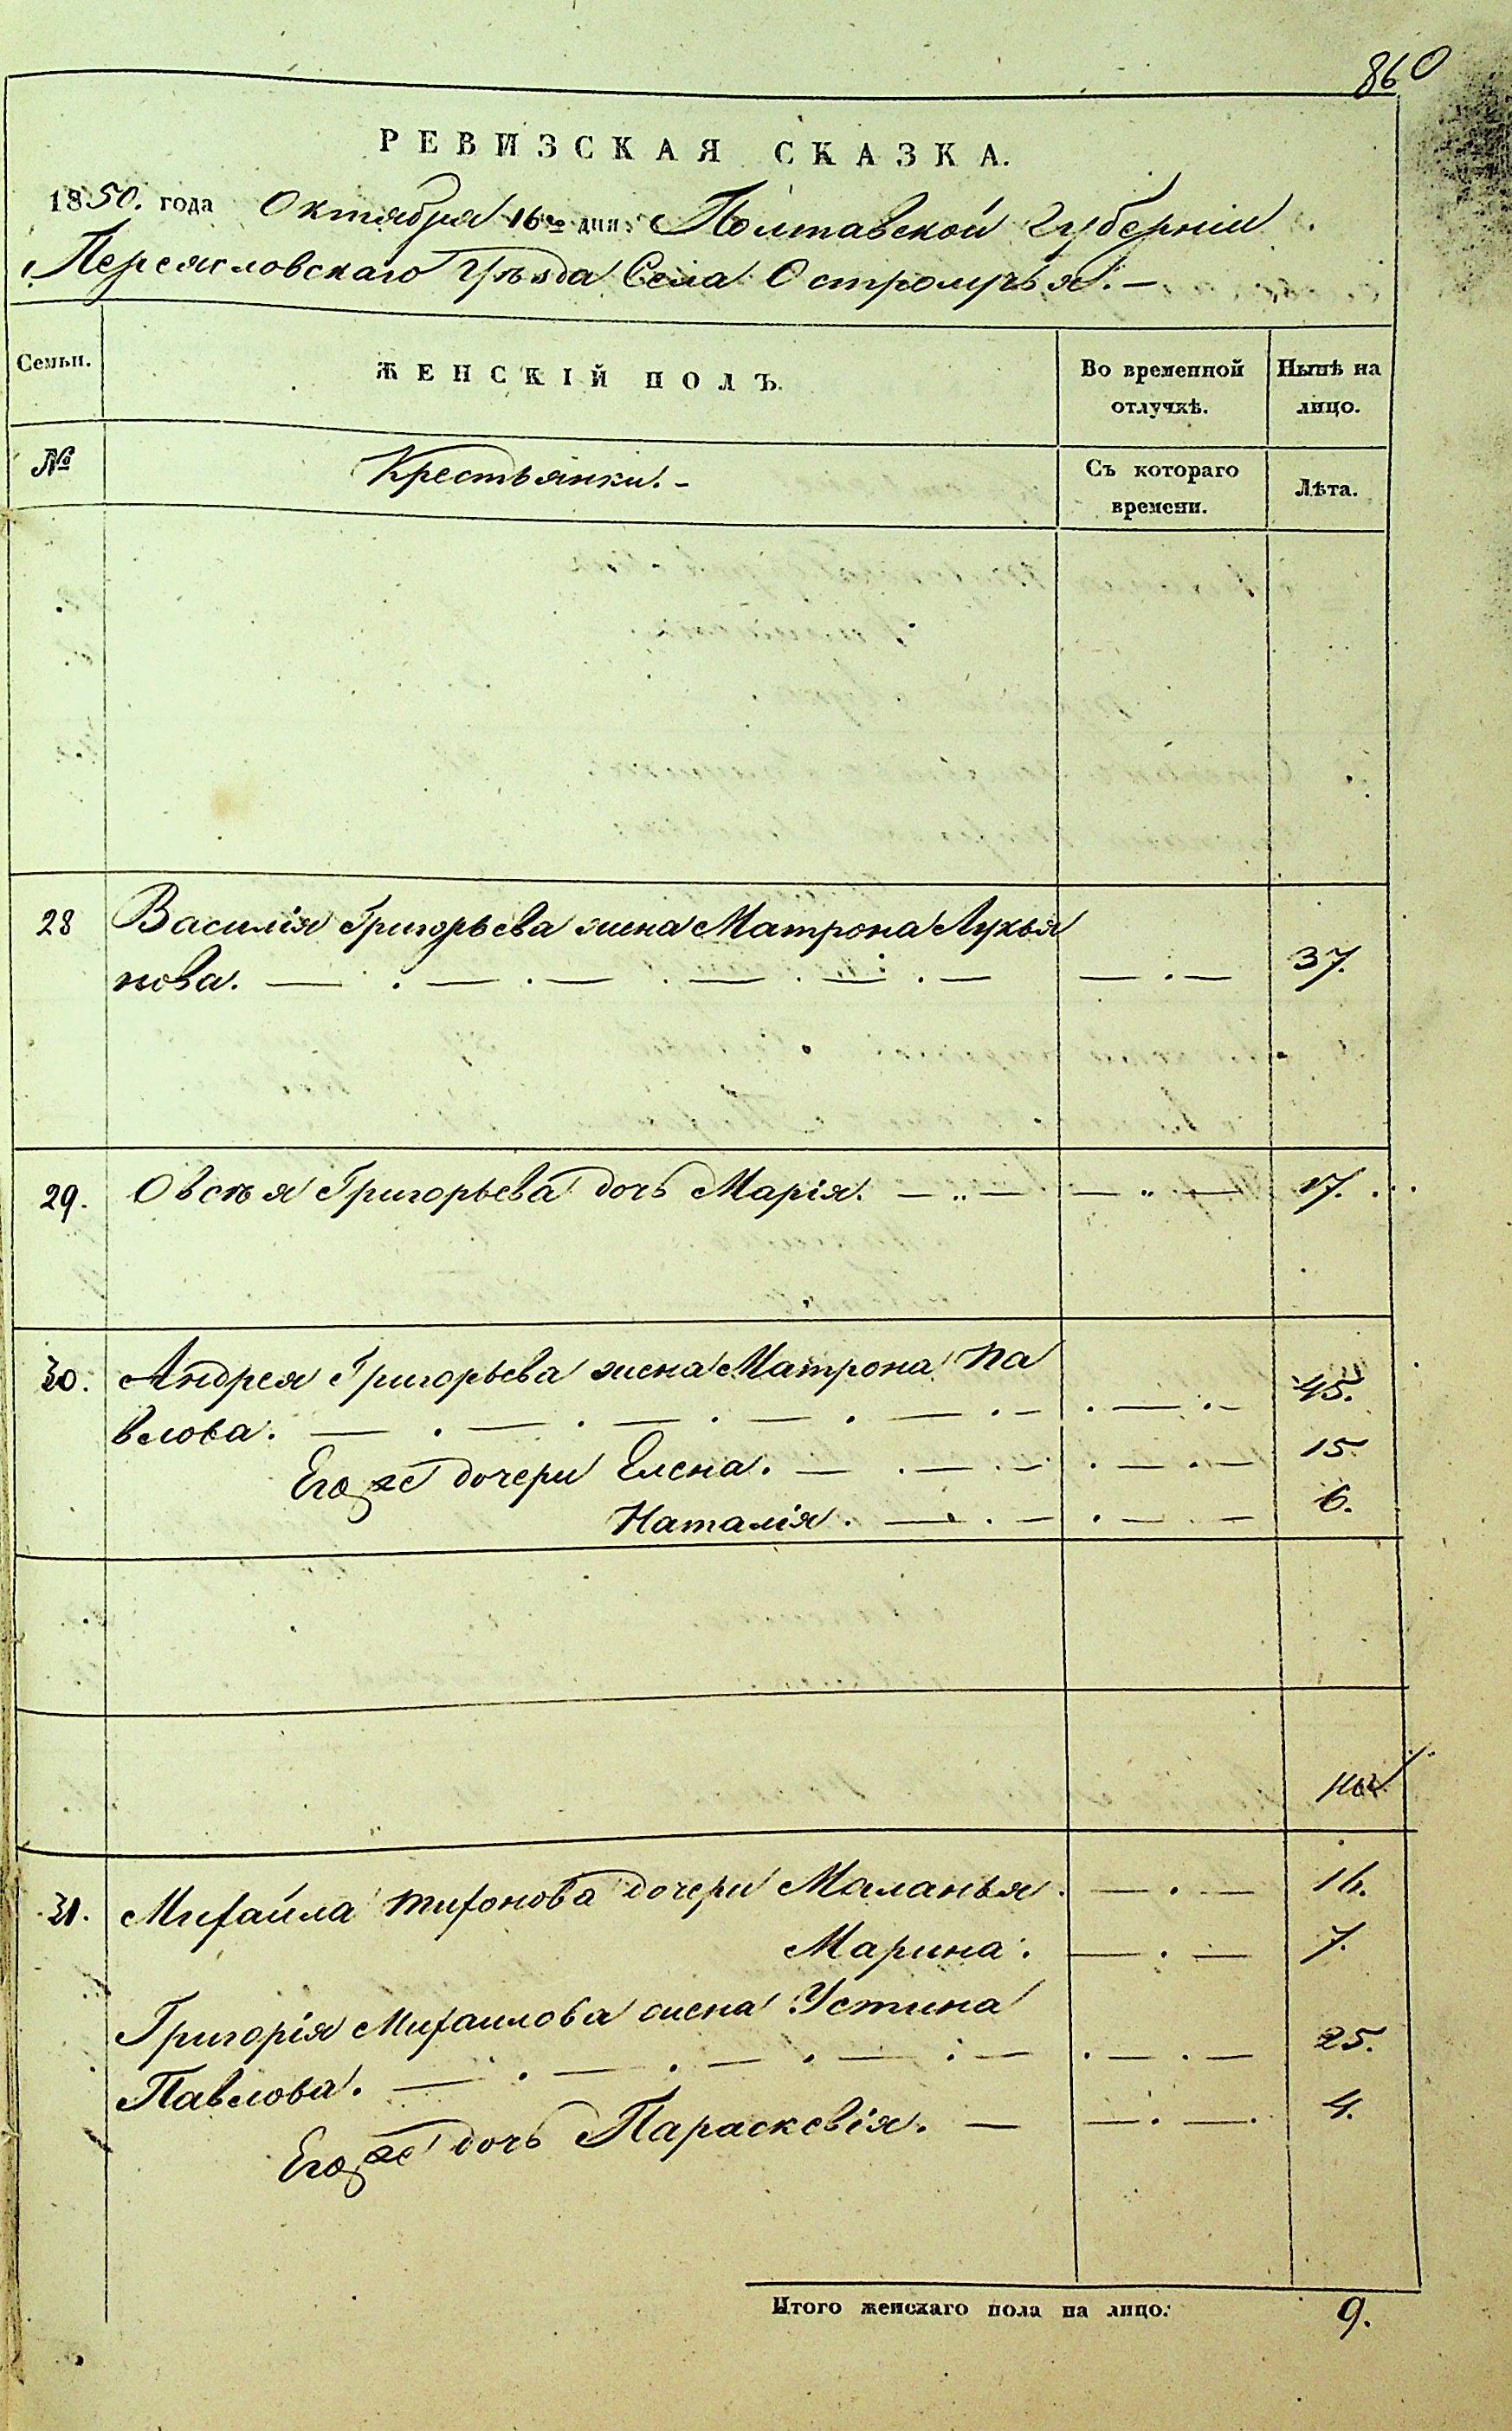 860
РЕВИЗСКАЯ СКАЗКА.
1850. года Октября 16го дня: Полтавской Губерніи
Переясловскаго Уѣзда Села Остролучья. —
Семьи.
ЖЕНСКІЙ ПОЛЪ.
Во временной отлучкѣ.
Нынѣ на лицо.
№
Крестьянки. -
Съ котораго времени.
Лѣта.
28 Василія Григорьева жена Матрона Лукья
нова. — . — . — . — . — . — — . — 37.
29. Овсѣя Григорьева дочь Марія. — „ — — „ — 17.
30. Андрея Григорьева жена Матрона Па
влова. — . — . — . — . — . — . — . — 45.
Его же дочери Елена. — . — . — . — . — 15.
Наталія. — . — . — . — 6.
31. Михайла Тихонова дочери Маланья. — . — 16.
Марина. — . — 7.
Григорія Михаилова жена Устина
Павлова. — . — . — . — . — . — . — 25.
Его же дочь Параскевія. — — . — . 4.
Итого женскаго пола на лицо. 9.